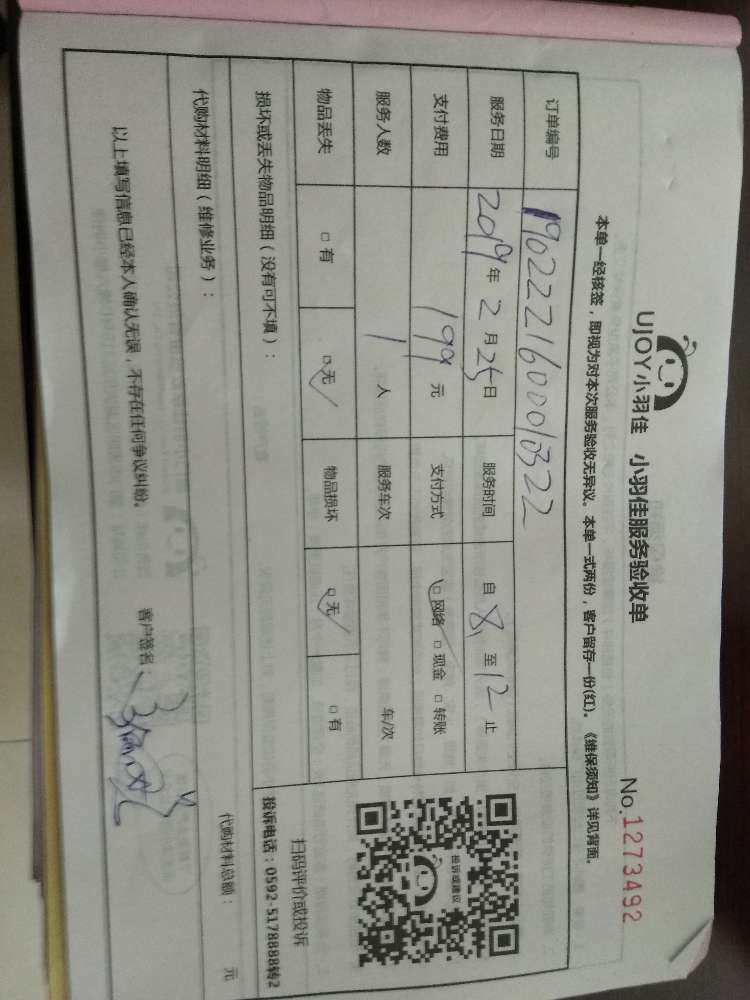 UJOY小羽佳 小羽佳服务验收单
No.1273492
本单一经核签，即视为对本次服务验收无异议。本单一式两份，客户留存一份(红)。《维保须知》详见背面。
订单编号 1902221600010322
服务日期 2019年2月25日 服务时间 自8至12止
支付费用 199元 支付方式 □网络 □现金 □转账
服务人数 1人 服务车次 车/次
物品丢失 □有 □无 物品损坏 □无 □有
投诉或建议
扫码评价或投诉
投诉电话：0592-5178888转2
损坏或丢失物品明细（没有可不填）：
代购材料明细（维修业务）：
代购材料总额： 元
以上填写信息已经本人确认无误，不存在任何争议纠纷。
客户签名：